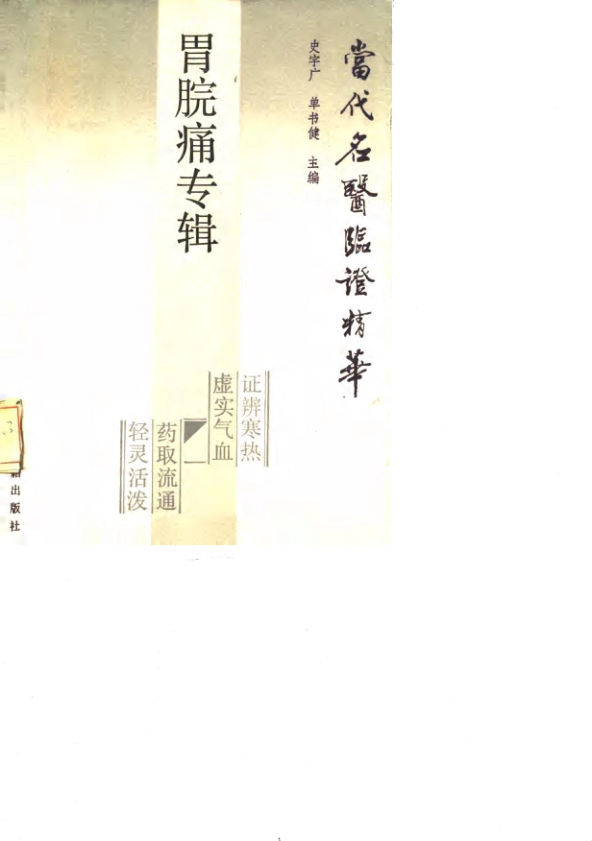 當代名醫臨證精華
史宇广 单书健 主编
胃脘痛专辑
证辨寒热
虚实气血
药取流通
轻灵活泼
出版社